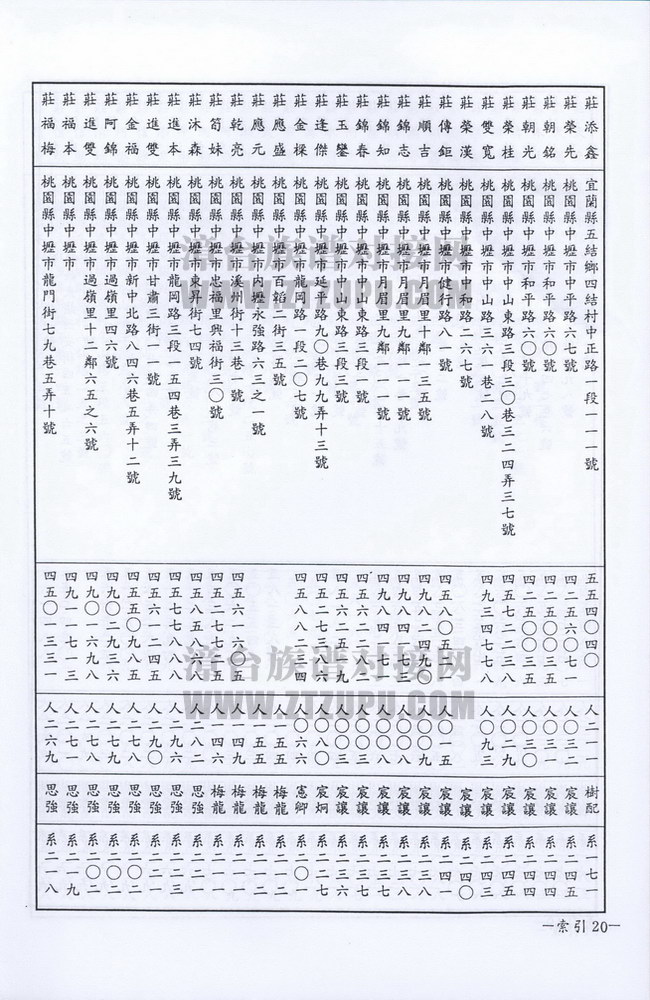 莊添鑫 宜蘭縣五結鄉四結村中正路一段一一一號 五五四〇四〇 人二一一 樹配 系一七一
莊榮先 桃園縣中壢市中平路六七號 四二五六〇七一 人〇三二 宸讓 系二四五
莊朝銘 桃園縣中壢市和平路六〇號 四二五〇〇三五 人〇三一 宸讓 系二四五
莊朝光 桃園縣中壢市和平路六〇號 四二五〇〇三五 人〇三〇 宸讓 系二四四
莊榮桂 桃園縣中壢市中山東路三段三〇巷三二四弄三七號 四五七二二三八 人〇二九 宸讓 系二四四
莊雙寬 桃園縣中壢市中山路三六一巷二八號 四九三四七七八 人〇九三 宸讓 系二四三
莊榮漢 桃園縣中壢市中和路二六七號 宸讓 系二四〇
莊傳鉅 桃園縣中壢市健行路八一號 四五八〇五二一 人〇一五 宸讓 系二四一
莊順吉 桃園縣中壢市月眉里十鄰一三五號 四九八二四九〇 人〇〇九 宸讓 系二三一
莊錦志 桃園縣中壢市月眉里九鄰一一一號 四九八四一七三 人〇〇八 宸讓 系二三八
莊錦知 桃園縣中壢市月眉里九鄰一一一號 四九八四一七三 人〇〇八 宸讓 系二三七
莊錦春 桃園縣中壢市中山東路三段一號 四五六二一八二 人〇〇三 宸讓 系二三七
莊玉鑾 桃園縣中壢市中山東路三段三號 四五六二五一九 人〇〇三 宸讓 系二三六
莊逢傑 桃園縣中壢市延平路九〇巷九九弄十三號 四五二七三八八 人〇八〇 宸炯 系二二七
莊金樑 桃園縣中壢市龍岡路一段二〇七號 四五八八二三四 人〇六六 憲卿 系二〇一
莊應盛 桃園縣中壢市百韜二街三五號 人一五五 梅龍 系二一二
莊應元 桃園縣中壢市內壢永強路六三之一號 人一五五 梅龍 系二一二
莊乾亮 桃園縣中壢市溪州街十三巷一號 四五六一六〇五 人一四九 梅龍 系二一一
莊筍妹 桃園縣中壢市忠福里興福街三〇號 四五二七七二五 人一四六 梅龍 系二一一
莊沐森 桃園縣中壢市東昇街七四號 四五八五八六一 人二八二 思強 系二二一
莊進本 桃園縣中壢市龍岡路三段一五四巷三弄三九號 四五七七八八八 人二九六 思強 系二二三
莊進雙 桃園縣中壢市甘肅三街一一號 四五六一二四五 人二九〇 思強 系二二一
莊金福 桃園縣中壢市新中北路八四六巷五弄十二號 四五五〇九八八 人二七一 思強 系二〇二
莊阿錦 桃園縣中壢市過嶺里四六號 四九〇二九三六 人二七八 思強 系二〇二
莊進雙 桃園縣中壢市過嶺里十二鄰六五之六號 四九〇一六九八 人二七八 思強 系二〇二
莊福本 桃園縣中壢市 四九一一七一三 人二七一 思強 系二一九
莊福梅 桃園縣中壢市龍門街七九巷五弄十號 四五〇一三三一 人二六九 思強 系二一八
漳台族谱对接网
WWW.ZTZUPU.COM
漳台族谱对接网
WWW.ZTZUPU.COM
—索引20—